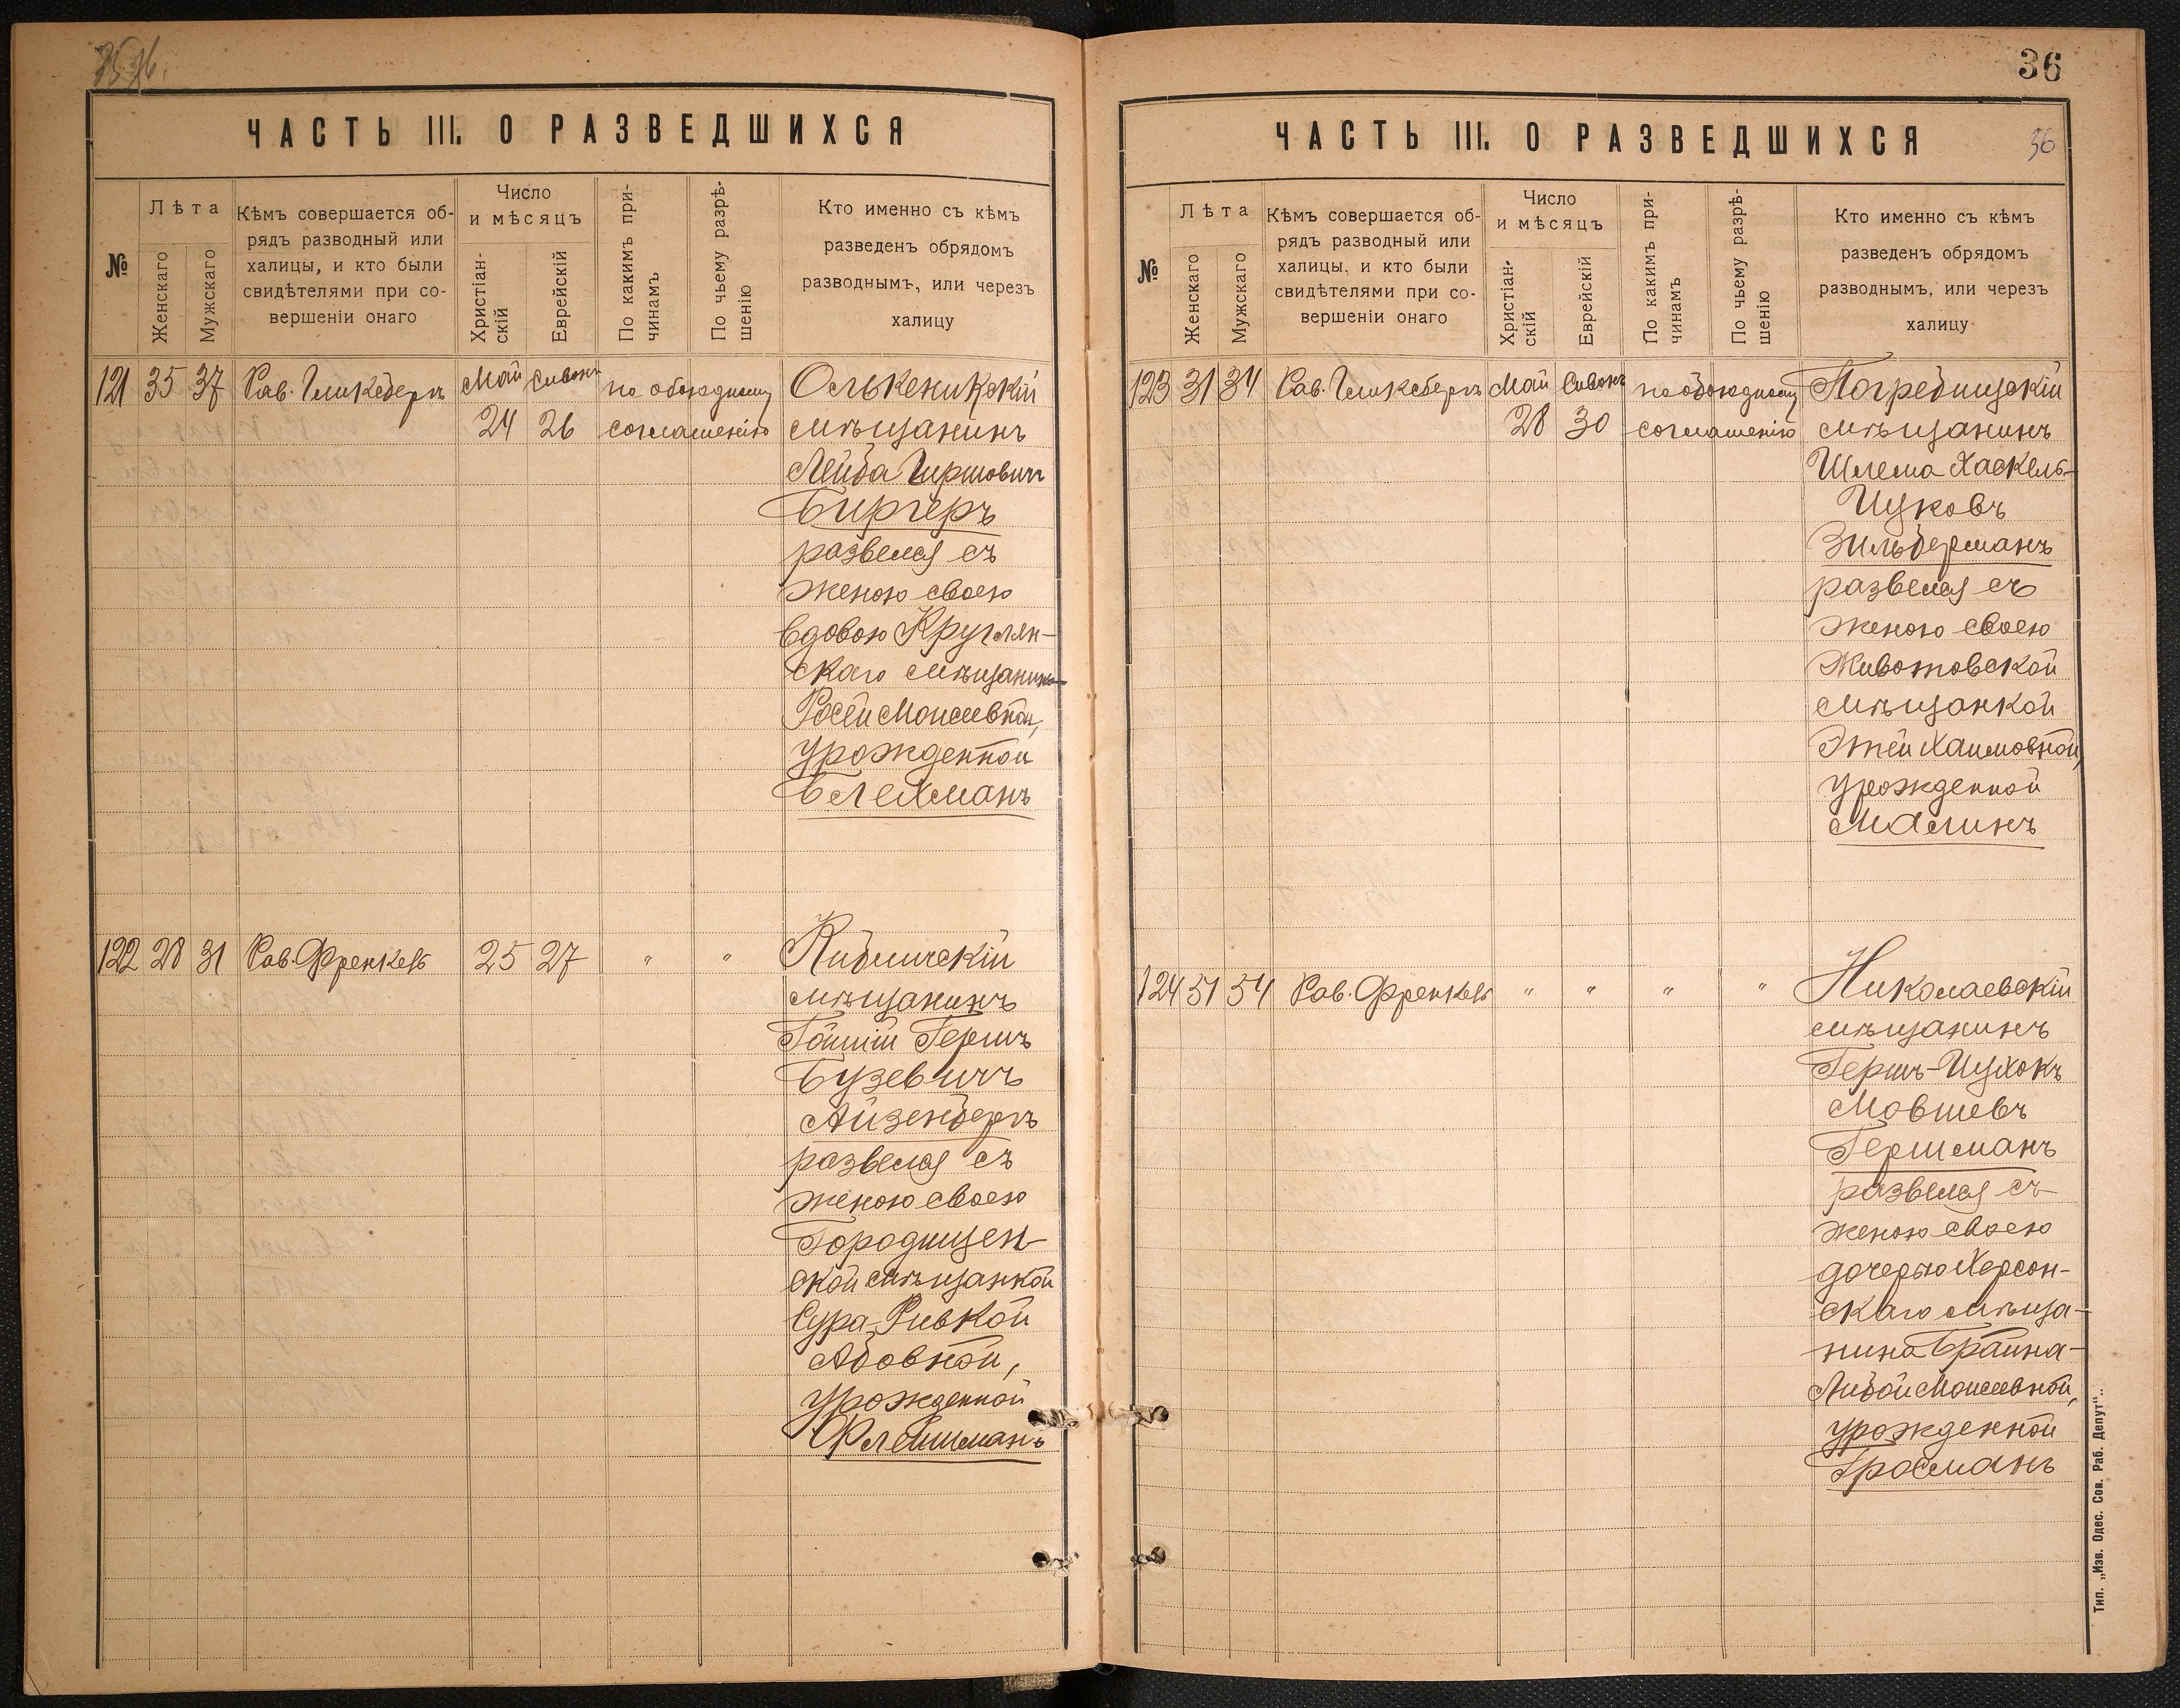 36
ЧАСТЬ III. О РАЗВЕДШИХСЯ
№
Лѣта
Женскаго
Мужскаго
Кѣмъ совершается об-
рядъ разводный или
халицы, и кто были
свидѣтелями при со-
вершеніи онаго
Число
и мѣсяцъ
Христіан-
скій
Еврейскій
По какимъ при-
чинамъ
По чьему разрѣ-
шенію
Кто именно съ кѣмъ
разведенъ обрядомъ
разводнымъ, или черезъ
халицу
121 35 37 Рав. Гликсбергъ Май Сивонъ по обоюдному Олькеникскій
24 26 соглашенію мѣщанинъ
Лейба Гиршовичъ
Биргеръ
развелся съ
женою своею
вдовою Круглян-
скаго мѣщанина
Росей Моисеевной,
урожденной
Блехманъ
122 28 31 Рав. Френкель 25 27 " " Кибличскій
мѣщанинъ
Гершъ
Бузевичъ
Айзенбергъ
развелся съ
женою своею
Городищен-
ской мѣщанкой
Сура-Ривкой
Абовной,
урожденной
Флейшманъ
36
ЧАСТЬ III. О РАЗВЕДШИХСЯ
36
№
Лѣта
Женскаго
Мужскаго
Кѣмъ совершается об-
рядъ разводный или
халицы, и кто были
свидѣтелями при со-
вершеніи онаго
Число
и мѣсяцъ
Христіан-
скій
Еврейскій
По какимъ при-
чинамъ
По чьему разрѣ-
шенію
Кто именно съ кѣмъ
разведенъ обрядомъ
разводнымъ, или черезъ
халицу
123 31 34 Рав. Гликсбергъ Май Сивонъ по обоюдному Погребищскій
28 30 соглашенію мѣщанинъ
Шлема Хаскель-
Ицковъ
Зильберманъ
развелся съ
женою своею
Животовской
мѣщанкой
Этей Хаимовной,
урожденной
Малинъ
124 51 54 Рав. Френкель " " " " Николаевскій
мѣщанинъ
Гершъ-Ицхокъ
Мовшевъ
Гершманъ
развелся съ
женою своею
дочерью Херсон-
скаго мѣща-
нина Брайна-
Либой Моисеевной,
урожденной
Гросманъ
Тип. „Изв. Одес. Сов. Раб. Депут".